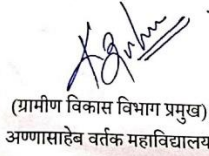 (ग्रामीण विकास विभाग प्रमुख)
अण्णासाहेब वर्तक महाविद्यालय